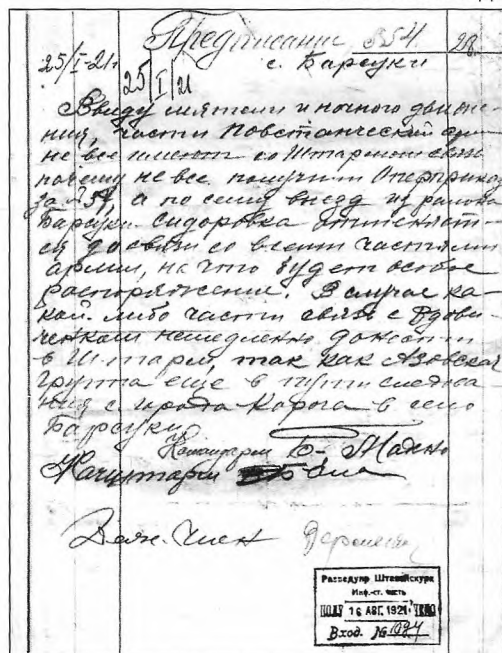 Предписание 354 28.
25/I-21г с. Барсуки
25/I 21
Ввиду мятели и ночного движе-
ния, части Повстанческой арм
не все имеют со Штармом связь
почему не все получили Оперприказ
за №54, а по сему выезд из района
Барсуки-Сидоровка отменяет-
ся до связи со всеми частями
армии, на что будет особое
распоряжение. В случае ка-
кой-либо части связи с Вдови-
ченком немедленно донести
в Штарм, так как Азовская
группа еще в пути следова
ния с города Корога в село
Барсуки
Командарм Б- Махно
Начштарм Бела
Деж. Член
Разведупр Штавойскукр
Инф.-ст. часть
ПОЛУ 16 АВГ. 1921
Вход. №